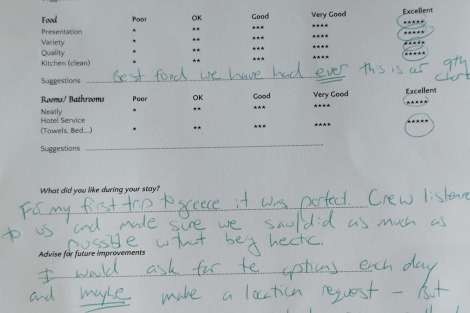 Food Poor OK Good Very Good Excellent
Presentation * ** *** **** *****
Variety * ** *** **** *****
Quality * ** *** **** *****
Kitchen (clean) * ** *** **** *****
Suggestions Best food we have had ever this is our 9th
Rooms/ Bathrooms Poor OK Good Very Good Excellent
Neatly * ** *** **** *****
Hotel Service
(Towels, Bed...) * ** *** **** *****
Suggestions
What did you like during your stay?
For my first trip to greece it was perfect. Crew listene
to us and made sure we saw/did as much as
possble witout beg hectic.
Advise for future improvements
I would ask for te options each day
and maybe make a location request - But